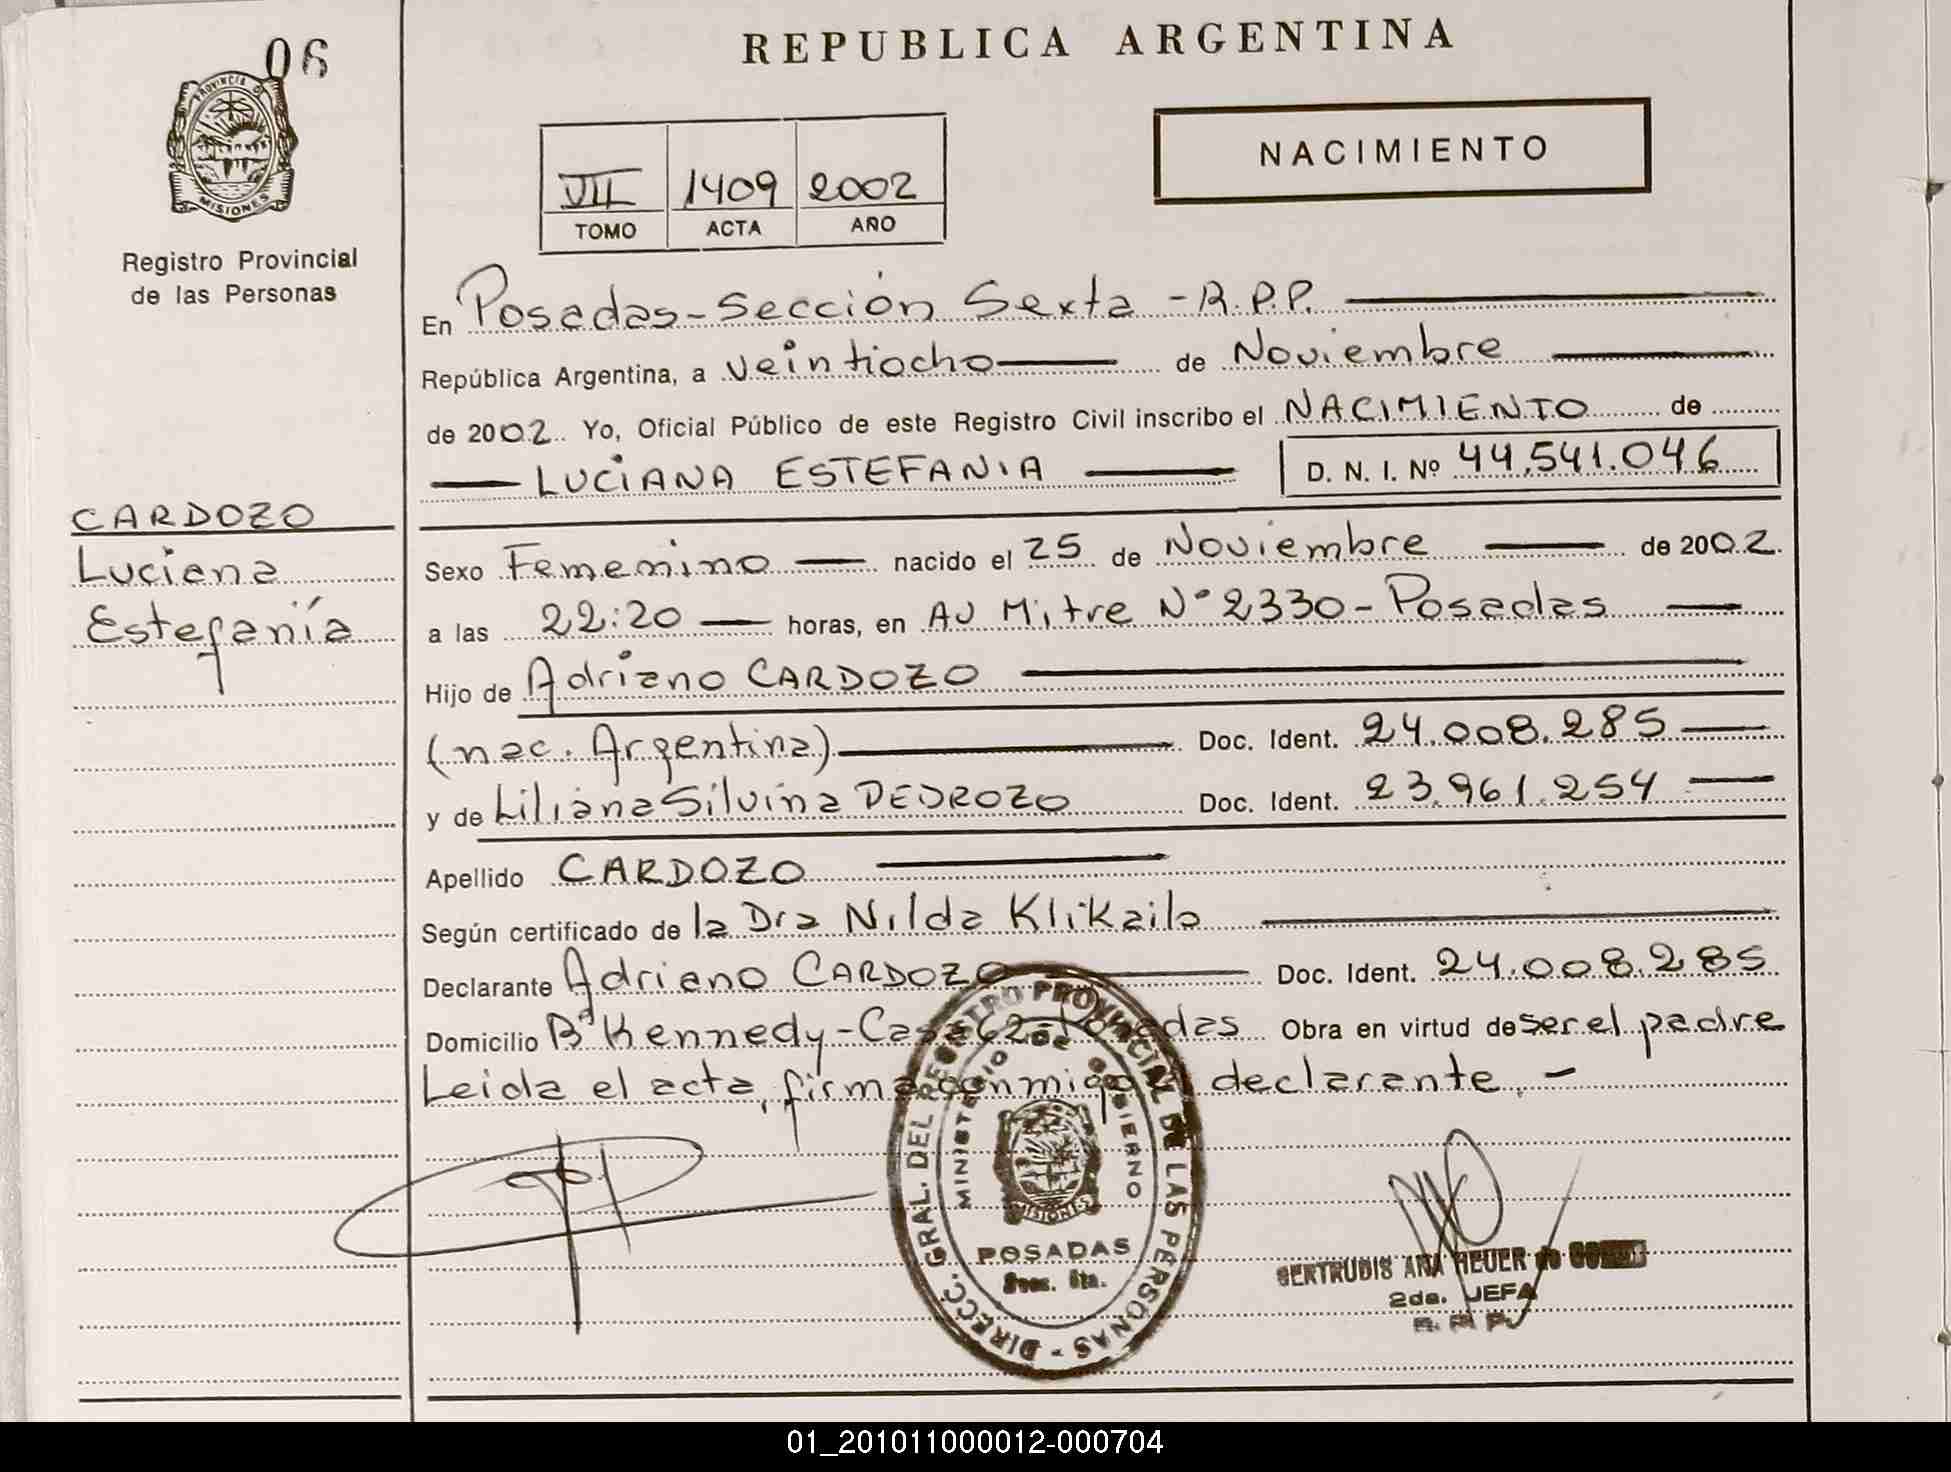 06
PROVINCIA DE
MISIONES
Registro Provincial
de las Personas
REPUBLICA ARGENTINA
NACIMIENTO
VII 1409 2002
TOMO ACTA AÑO
En Posadas - Sección Sexta - R.P.P.
República Argentina, a veintiocho de Noviembre
de 2002. Yo, Oficial Público de este Registro Civil inscribo el NACIMIENTO de
LUCIANA ESTEFANIA D. N. I. Nº 44.541.046
CARDOZO
Luciana
Estefanía
Sexo Femenino nacido el 25 de Noviembre de 2002.
a las 22:20 horas, en AV Mitre Nº 2330 - Posadas
Hijo de Adriano CARDOZO
(nac. Argentina) Doc. Ident. 24.008.285
y de Liliana Silvina PEDROZO Doc. Ident. 23.961.254
Apellido CARDOZO
Según certificado de la Dra Nilda
Declarante Adriano CARDOZO Doc. Ident. 24.008.285
Domicilio Bº Kennedy - Casa 62 - Posadas Obra en virtud de ser el padre
Leida el acta, firma conmigo el declarante. -
DIRECC. GRAL. DEL REGISTRO PROVINCIAL DE LAS PERSONAS -
MINISTERIO DE GOBIERNO
MISIONES
POSADAS
Secc. 6ta.
GERTRUDIS ANA HEUER de
2da. JEFA
R. P. P.
01_201011000012-000704